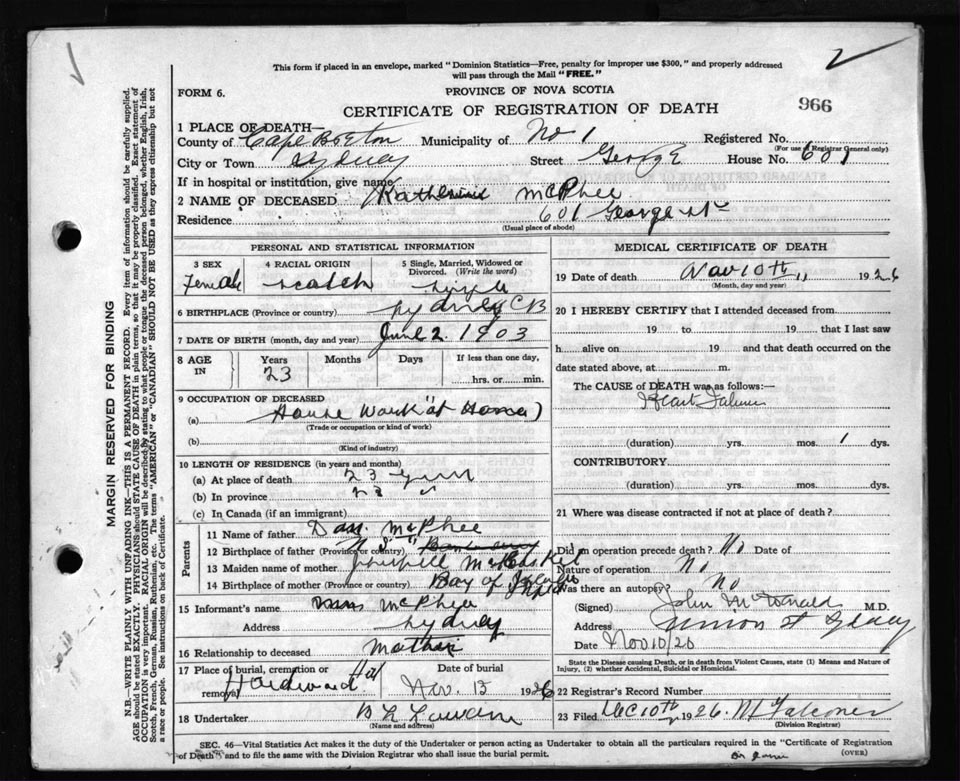 This form if placed in an envelope, marked "Dominion Statistics—Free, penalty for improper use $300," and properly addressed
will pass through the Mail "FREE."
FORM 6.
PROVINCE OF NOVA SCOTIA
CERTIFICATE OF REGISTRATION OF DEATH
966
1 PLACE OF DEATH—
County of Cape Breton Municipality of No 1 Registered No.
(For use of Registrar General only)
City or Town Sydney Street George House No. 601
If in hospital or institution, give name
2 NAME OF DECEASED Katherine McPhee
Residence 601 George St
(Usual place of abode)
PERSONAL AND STATISTICAL INFORMATION
3 SEX 4 RACIAL ORIGIN 5 Single, Married, Widowed or Divorced. (Write the word)
Female Scotch Single
6 BIRTHPLACE (Province or country) Sydney CB
7 DATE OF BIRTH (month, day and year) June 2 1903
8 AGE IN Years Months Days If less than one day,
23 hrs. or min.
9 OCCUPATION OF DECEASED
(a) House Work (at Home)
(Trade or occupation or kind of work)
(b)
(Kind of industry)
10 LENGTH OF RESIDENCE (in years and months)
(a) At place of death 23 years
(b) In province 23 "
(c) In Canada (if an immigrant)
Parents
11 Name of father Dan. McPhee
12 Birthplace of father (Province or country)
13 Maiden name of mother
14 Birthplace of mother (Province or country) Bay of
15 Informant's name McPhee
Address Sydney
16 Relationship to deceased Mother
17 Place of burial, cremation or removal Hardwood Hill Date of burial Nov. 13 1926
18 Undertaker
(Name and address)
MEDICAL CERTIFICATE OF DEATH
19 Date of death Nov 10th 1926
(Month, day and year)
20 I HEREBY CERTIFY that I attended deceased from
19 to 19 that I last saw
h alive on 19 and that death occurred on the
date stated above, at m.
The CAUSE of DEATH was as follows:—
Heart Failure
(duration) yrs. mos. 1 dys.
CONTRIBUTORY.
(duration) yrs. mos. dys.
21 Where was disease contracted if not at place of death?
Did an operation precede death? No Date of
Nature of operation No
Was there an autopsy? No
(Signed) John McDonald M.D.
Address Union St Sydney
Date Nov 10/26
State the Disease causing Death, or in death from Violent Causes, state (1) Means and Nature of
Injury, (2) whether Accidental, Suicidal or Homicidal.
22 Registrar's Record Number
23 Filed Dec 10th 1926. M Falconer
(Division Registrar)
SEC. 46—Vital Statistics Act makes it the duty of the Undertaker or person acting as Undertaker to obtain all the particulars required in the "Certificate of Registration
of Death" and to file the same with the Division Registrar who shall issue the burial permit.
(OVER)
MARGIN RESERVED FOR BINDING
N.B.—WRITE PLAINLY WITH UNFADING INK—THIS IS A PERMANENT RECORD. Every item of information should be carefully supplied.
AGE should be stated EXACTLY. PHYSICIANS should STATE CAUSE OF DEATH in plain terms, so that it may be properly classified. Exact statement of
OCCUPATION is very important. RACIAL ORIGIN will be described by stating to what people or tongue the deceased person belonged, whether English, Irish,
Scotch, French, German, Russian, Ruthenian, etc. The terms "AMERICAN" or "CANADIAN" SHOULD NOT BE USED as they express citizenship but not
a race or people. See instructions on back of Certificate.